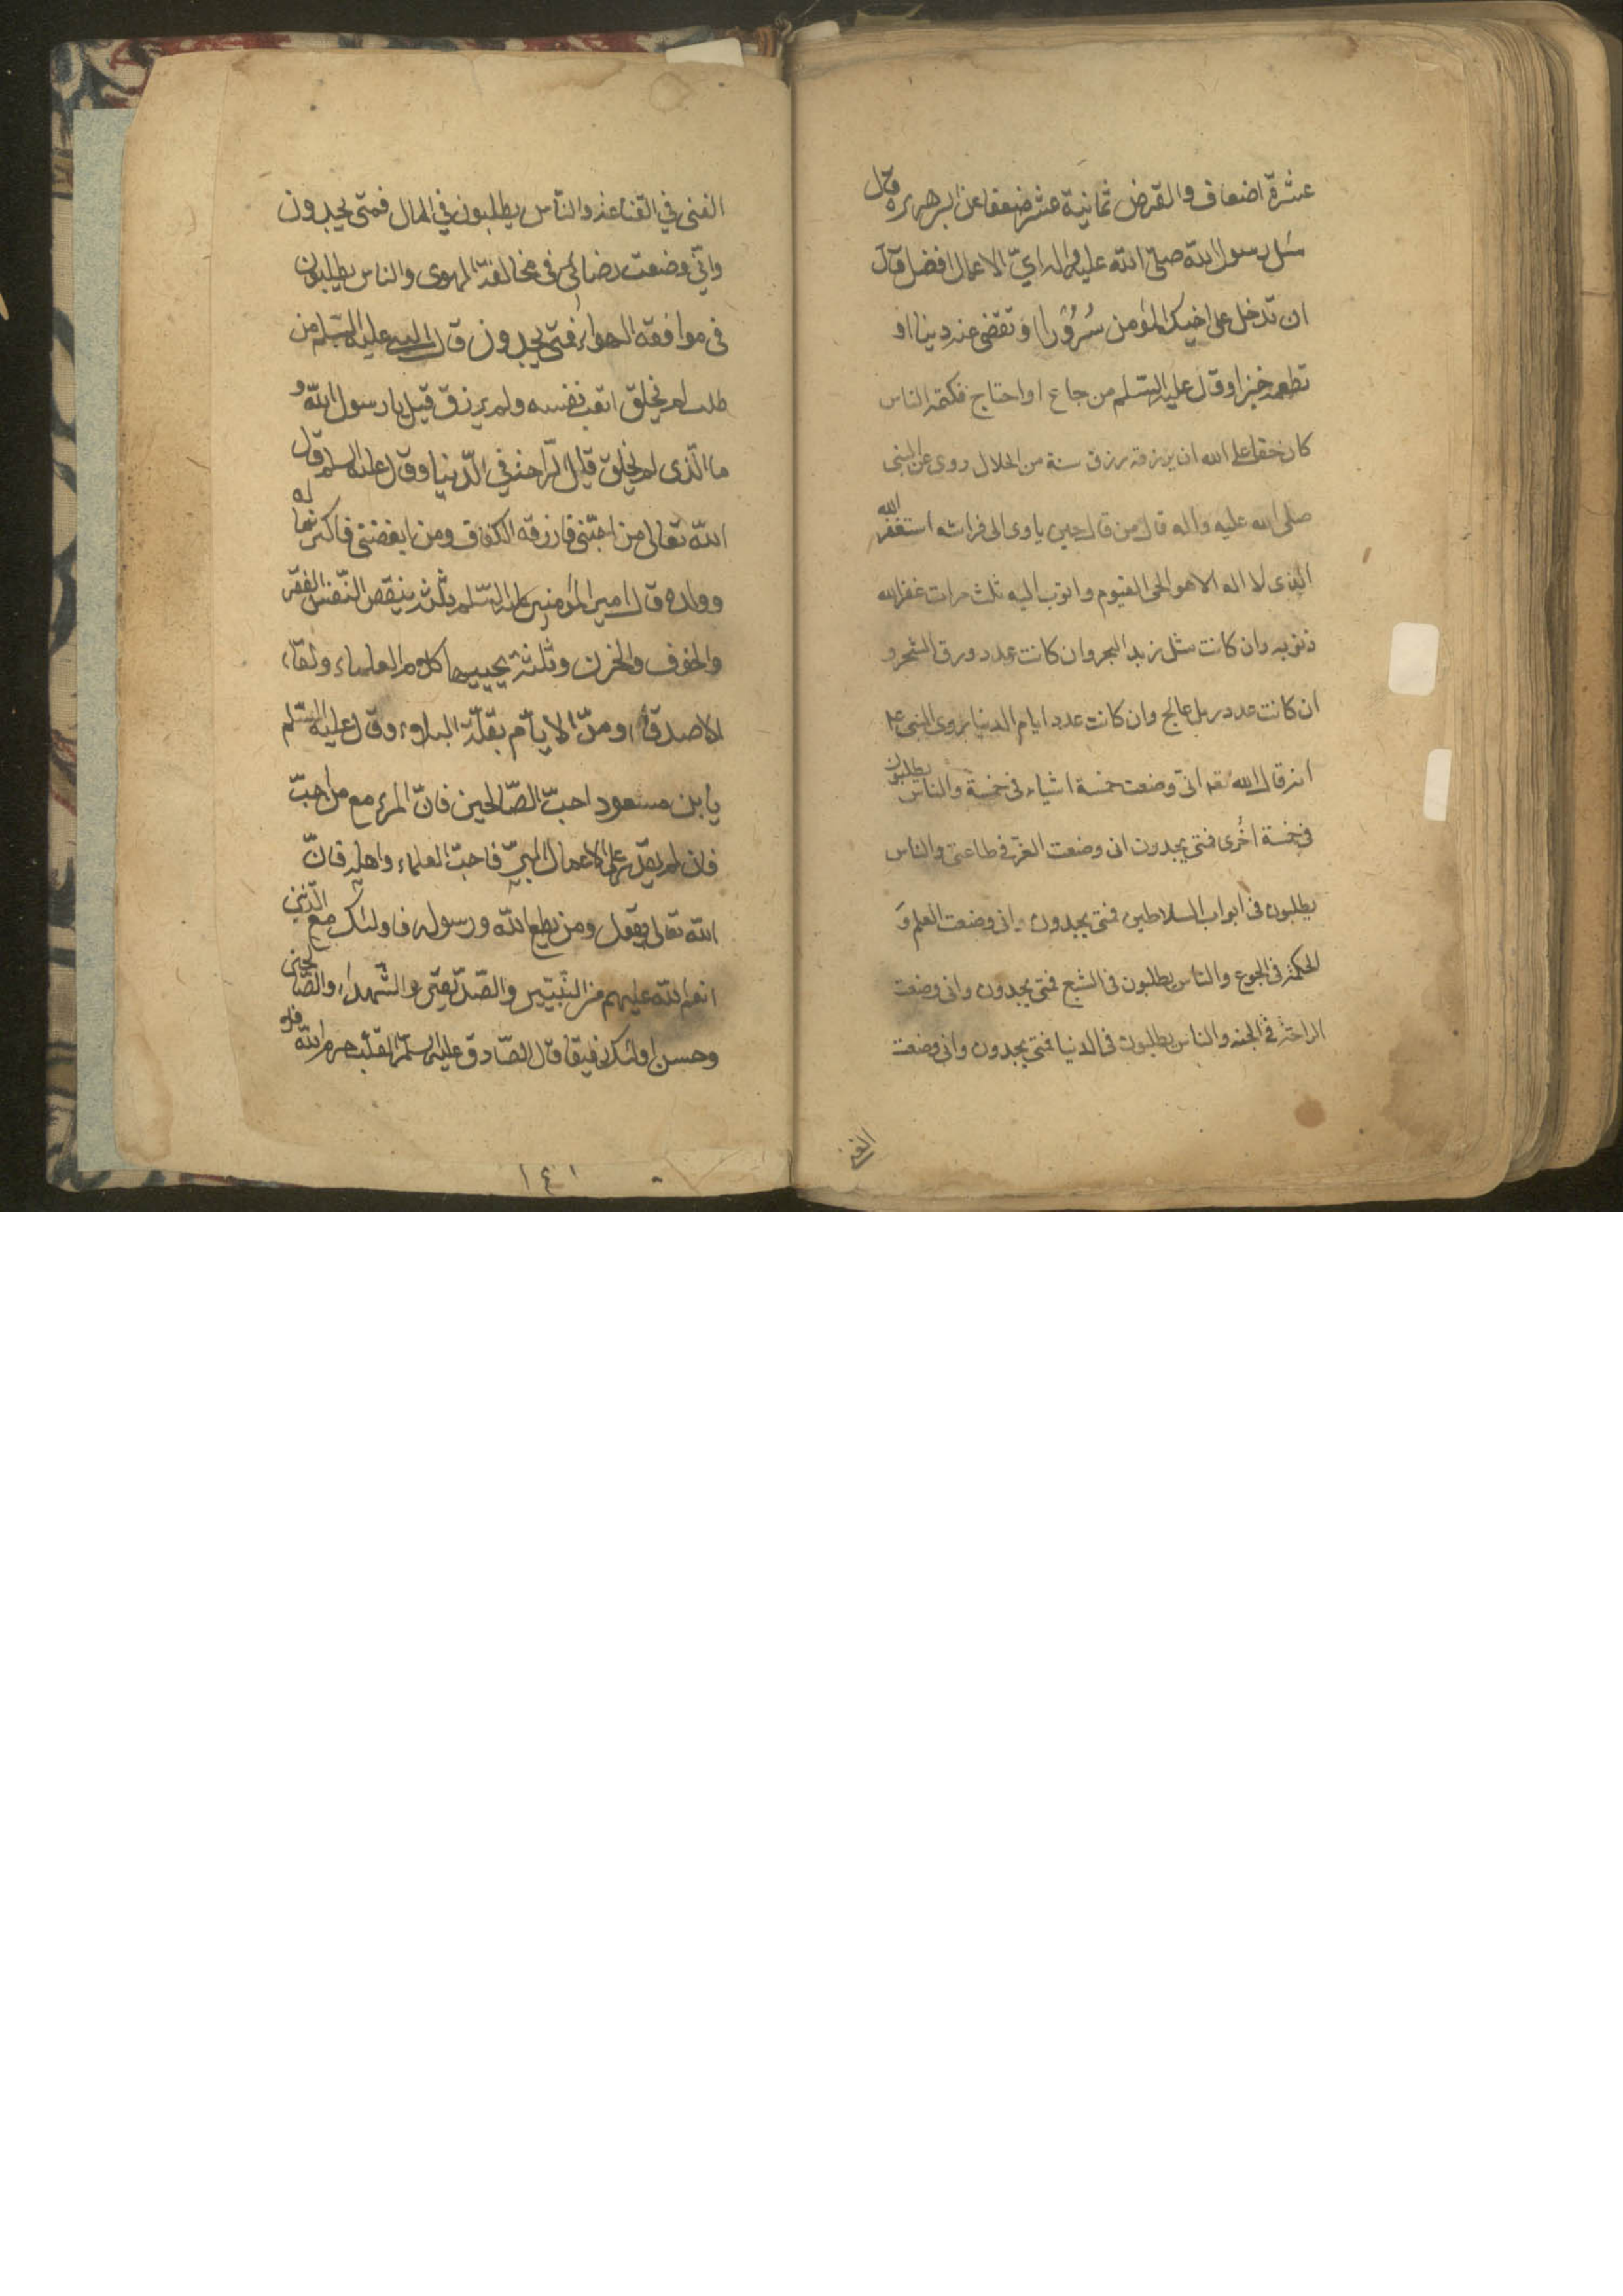 عشرة اضعاف والقرض ثمانية عشر ضعفا عن ابى هريره قال
سئل رسول الله صلى الله عليه واله اىّ الاعمال افضل قال
ان تدخل على اخيك المؤمن سُرُوْرا او تقضى عنه دينا او
تطعمه خبزا وقال عليه السلم من جاع او احتاج فكتمه الناس
كان حقا على الله ان يرزقه رزق سنة من الحلال روى عن النبى
صلى الله عليه واله قال من قال حين ياوى الى فراشه استغفر الله
الذى لا اله الا هو الحى القيوم واتوب اليه ثلث مرات غفر الله
ذنوبه وان كانت مثل زبد البحر وان كانت عدد ورق الشجر و
ان كانت عدد رمل عالج وان كانت عدد ايام الدنيا روى النبى
انه قال الله تعه انى وضعت خمسة اشياء فى خمسة والناس يطلبون
فى خمسة اُخرى فمتى يجدون انى وضعت العزّ فى طاعتى والناس
يطلبون فى ابواب السلاطين فمتى يجدون وانى وضعت العلم وَ
الحكمة فى الجوع والناس يطلبون فى الشبع فمتى يجدون وانى وضعت
الراحة فى الجنه والناس يطلبون فى الدنيا فمتى يجدون وانى وضعت
الغنى
الغنى فى القناعة والناس يطلبون فى المال فمتى يجدون
وانّى وضعت رضائى فى مخالفة الهوى والناس يطلبون
فى موافقة الهواء فمتى يجدون قال النبى عليه السلم من
طلب لم يخلق اتعب نفسه ولم يرزق قيل يا رسول الله و
ما الّذى لم يخلق قال الرّاحة فى الدّنيا وقال عليه السلم قال
الله تعالى من احبّنى فارزقه الكفاف ومن ابغضنى فاكثر له مالا
وولده قال امير المؤمنين عليه السّلم ثلثة ينقص النّفس الفقر
والخوف والحزن وثلثة يحييها كلام العلماء ولقاء
الاصدقاء ومرّ الايّام بقلّة البلاء وقال عليه السّلم
يا بن مسعود احبّ الصّالحين فانّ المرء مع من احبّ
فان لم يقدر على اعمال البرّ فاحبّ العلماء واهله فانّ
الله تعالى يقول ومن يطع الله ورسوله فاولئك مع الّذين
انعم الله عليهم من النّبيّين والصّدّيقين والشّهداء والصّالحين
وحسن اولئك رفيقا قال الصّادق عليه السلم القلب حرم الله فلا
١٤١